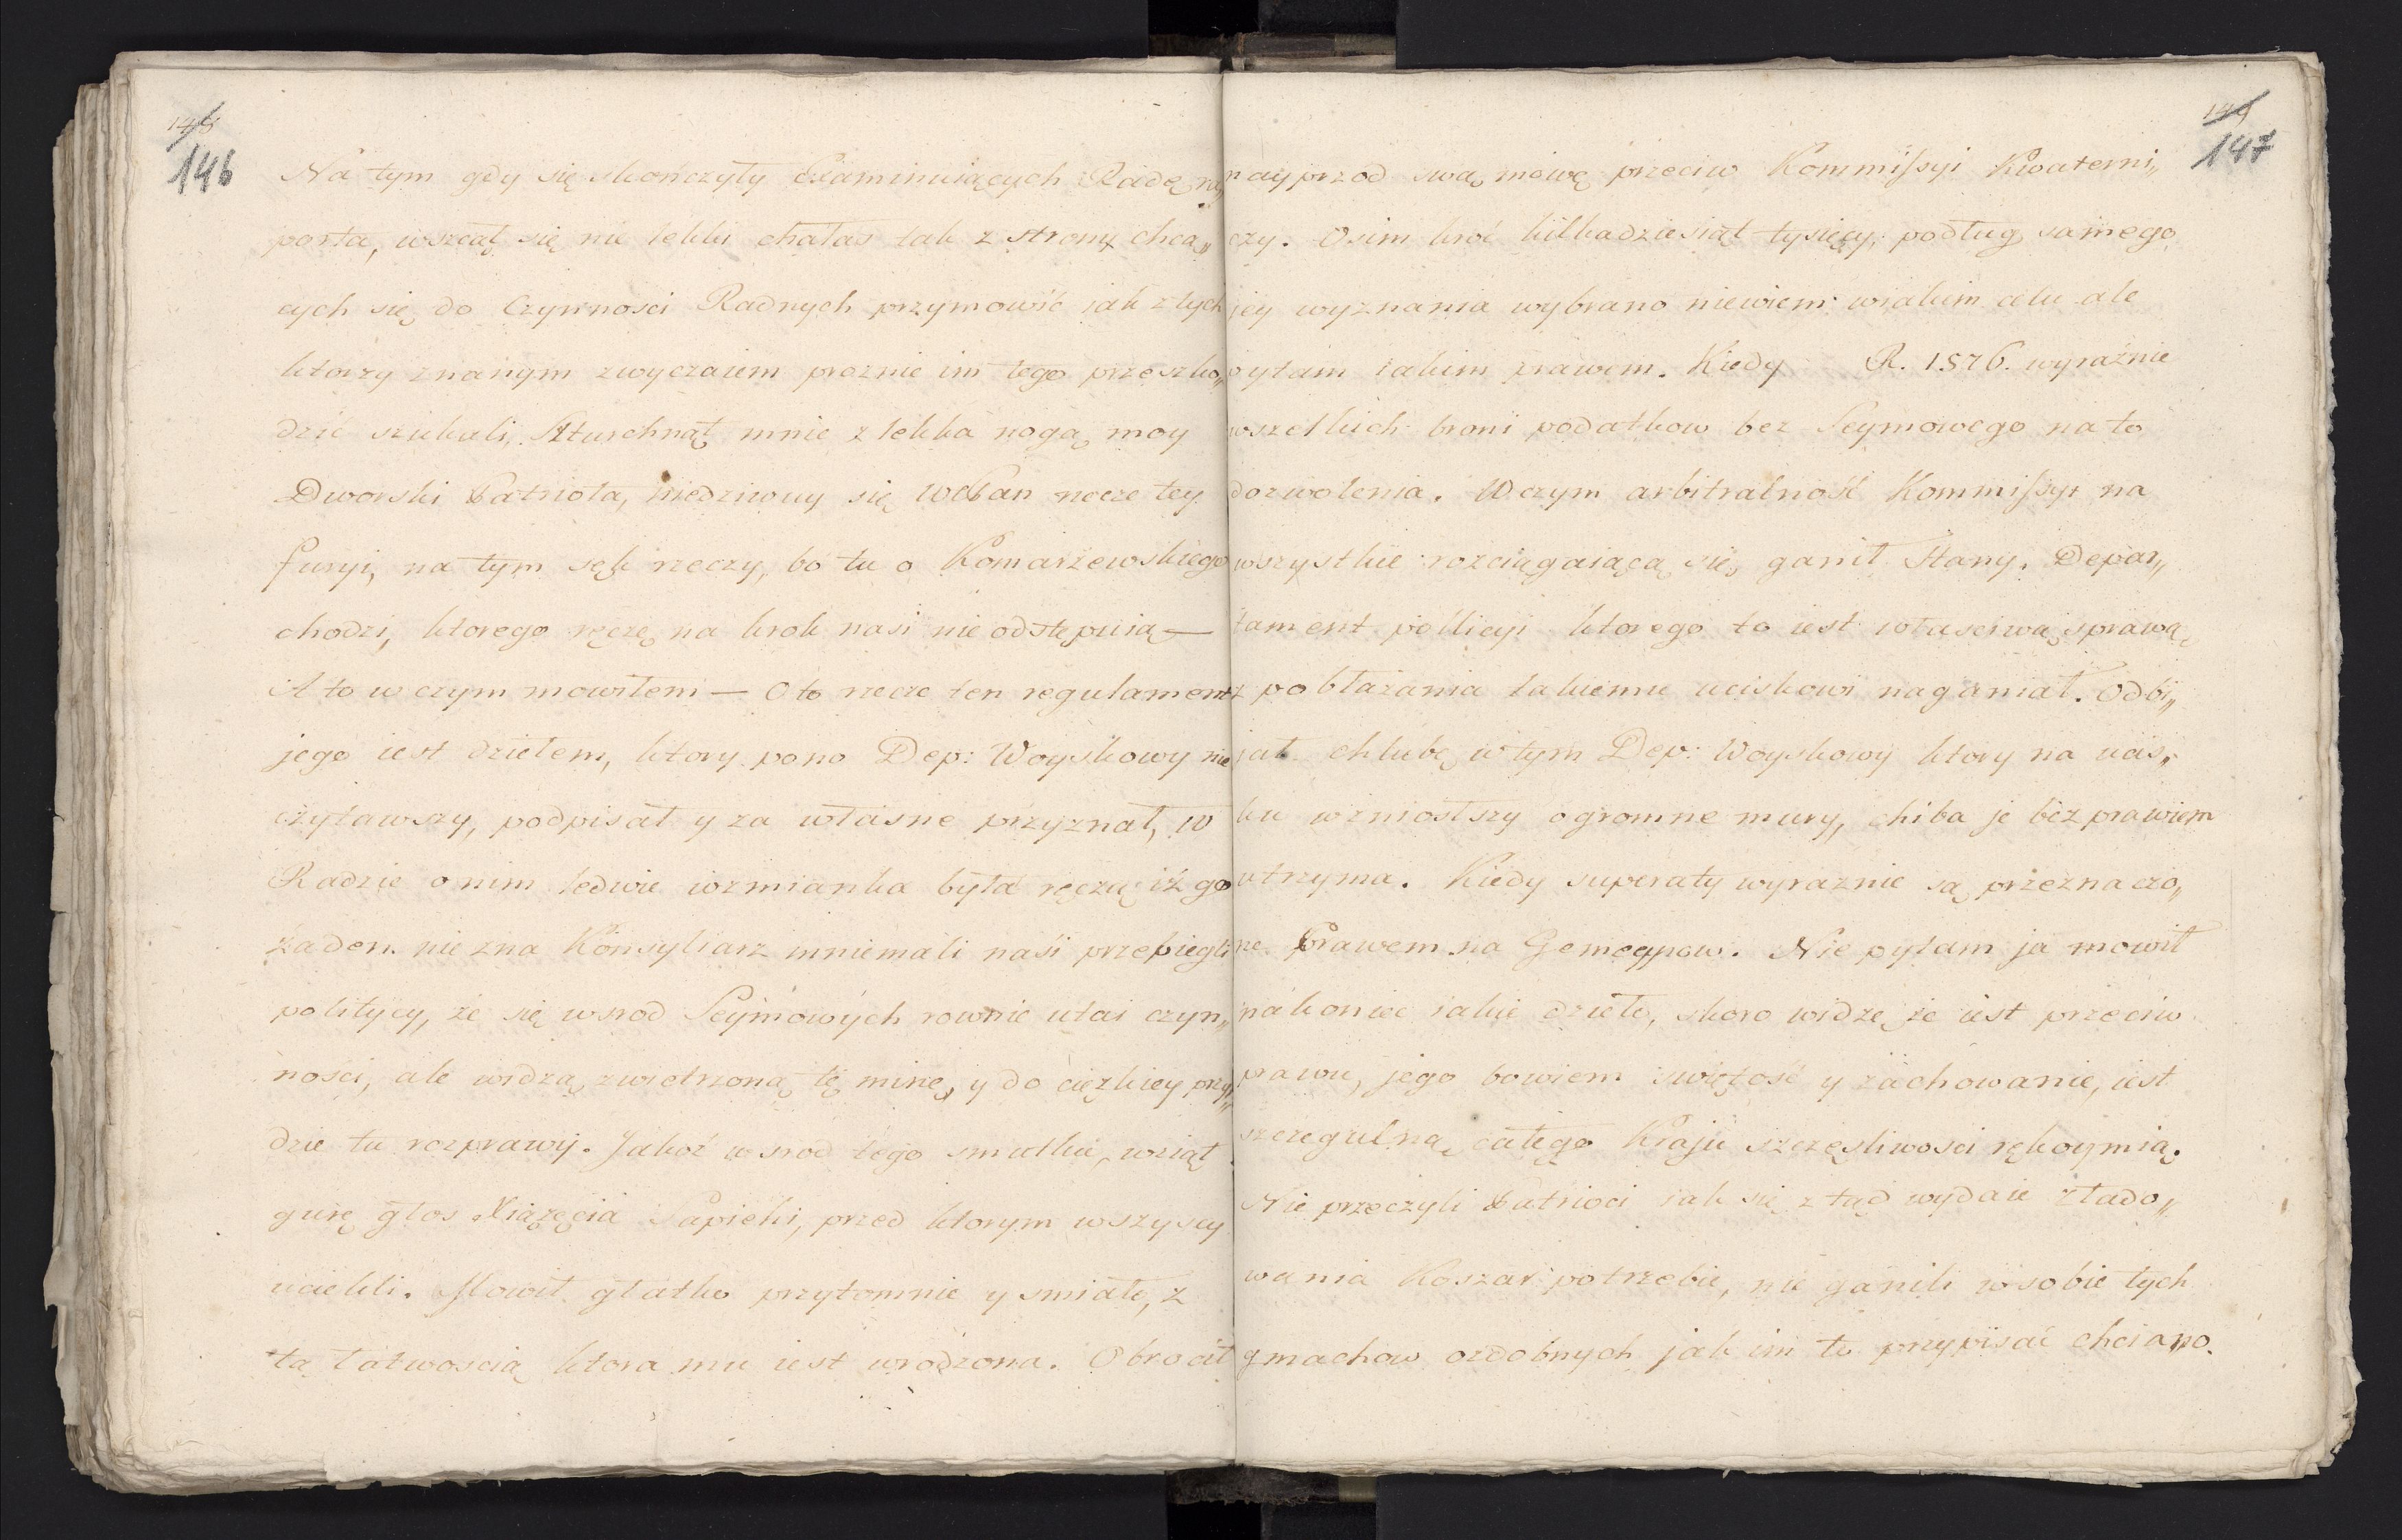 148
146
Na tym gdy się skończyły Examinuiących Radę ra„
porta, wszcął się nie lekki chałas tak z strony chcą„
cych się do Czynnosci Radnych przymowić iak z tych
ktorzy znanym zwyczaiem proznie im tego przeszko„
dzić szukali, Szturchnął mnie z lekka nogą moy
Dworski Patriota, niedziwuy się WcPan rzecze tey
furyi, na tym sęk rzeczy, bo tu o Komarzewskiego
chodzi, ktorego ręczę na krok nasi nie odstępuią —
A to w czym mowiłem — Oto rzecze ten regulament
jego iest dziełem, ktory pono Dep: Woyskowy nie
czytawszy, podpisał y za własne przyznał, w
Radzie o nim ledwie wzmianka była ręczę iż go
żaden nie zna Konsyliarz mniemali nasi przebiegli
politycy, że się wsrod Seymowych rownie utai czyn„
nosci, ale widzą zwietrzoną tę minę, y do cięzkiey przy„
dzie tu rozprawy. Jakoż wsrod tego smutku, wziął
gurę głos Xiążęcia Sapiehi, przed ktorym wszyscy
ucichli. Mowił gładko przytomnie y smiało, z
tą łatwoscią ktora mu iest wrodzona. Obrocił
149
147
nayprzod swą mowę przeciw Kommissyi Kwaterni„
czy. Osim kroć kilkadziesiąt tysięcy, podług samego
jey wyznania wybrano niewiem w iakim celu ale
pytam iakim prawem. Kiedy R. 1576. wyraźnie
wszelkich broni podatkow bez Seymowego na to
dozwolenia. W czym arbitralność Kommissyi na
wszystkie rozciągaiącą się, ganił Stany. Depar„
tament pollicyi ktorego to iest własciwą sprawą
z pobłażania takiemu uciskowi naganiał. Odbi„
jał chlubę w tym Dep: Woyskowy ktory na ucis„
ku wzniosłszy ogromne mury, chiba je bezprawiem
utrzyma. Kiedy superaty wyraznie są przeznaczo„
ne Prawem na Gemeynow. Nie pytam ja mowił
nakoniec iakie dzieło, skoro widzę że iest przeciw
prawu, jego bowiem swiętość y zachowanie, iest
szczegulną całego Kraju szczęsliwosci rękoymią.
Nie przeczyli Patrioci iak się z tąd wydaie zlado„
wania Koszar potrzebie, nie ganili w sobie tych
gmachow ozdobnych jak im to przypisać chciano.